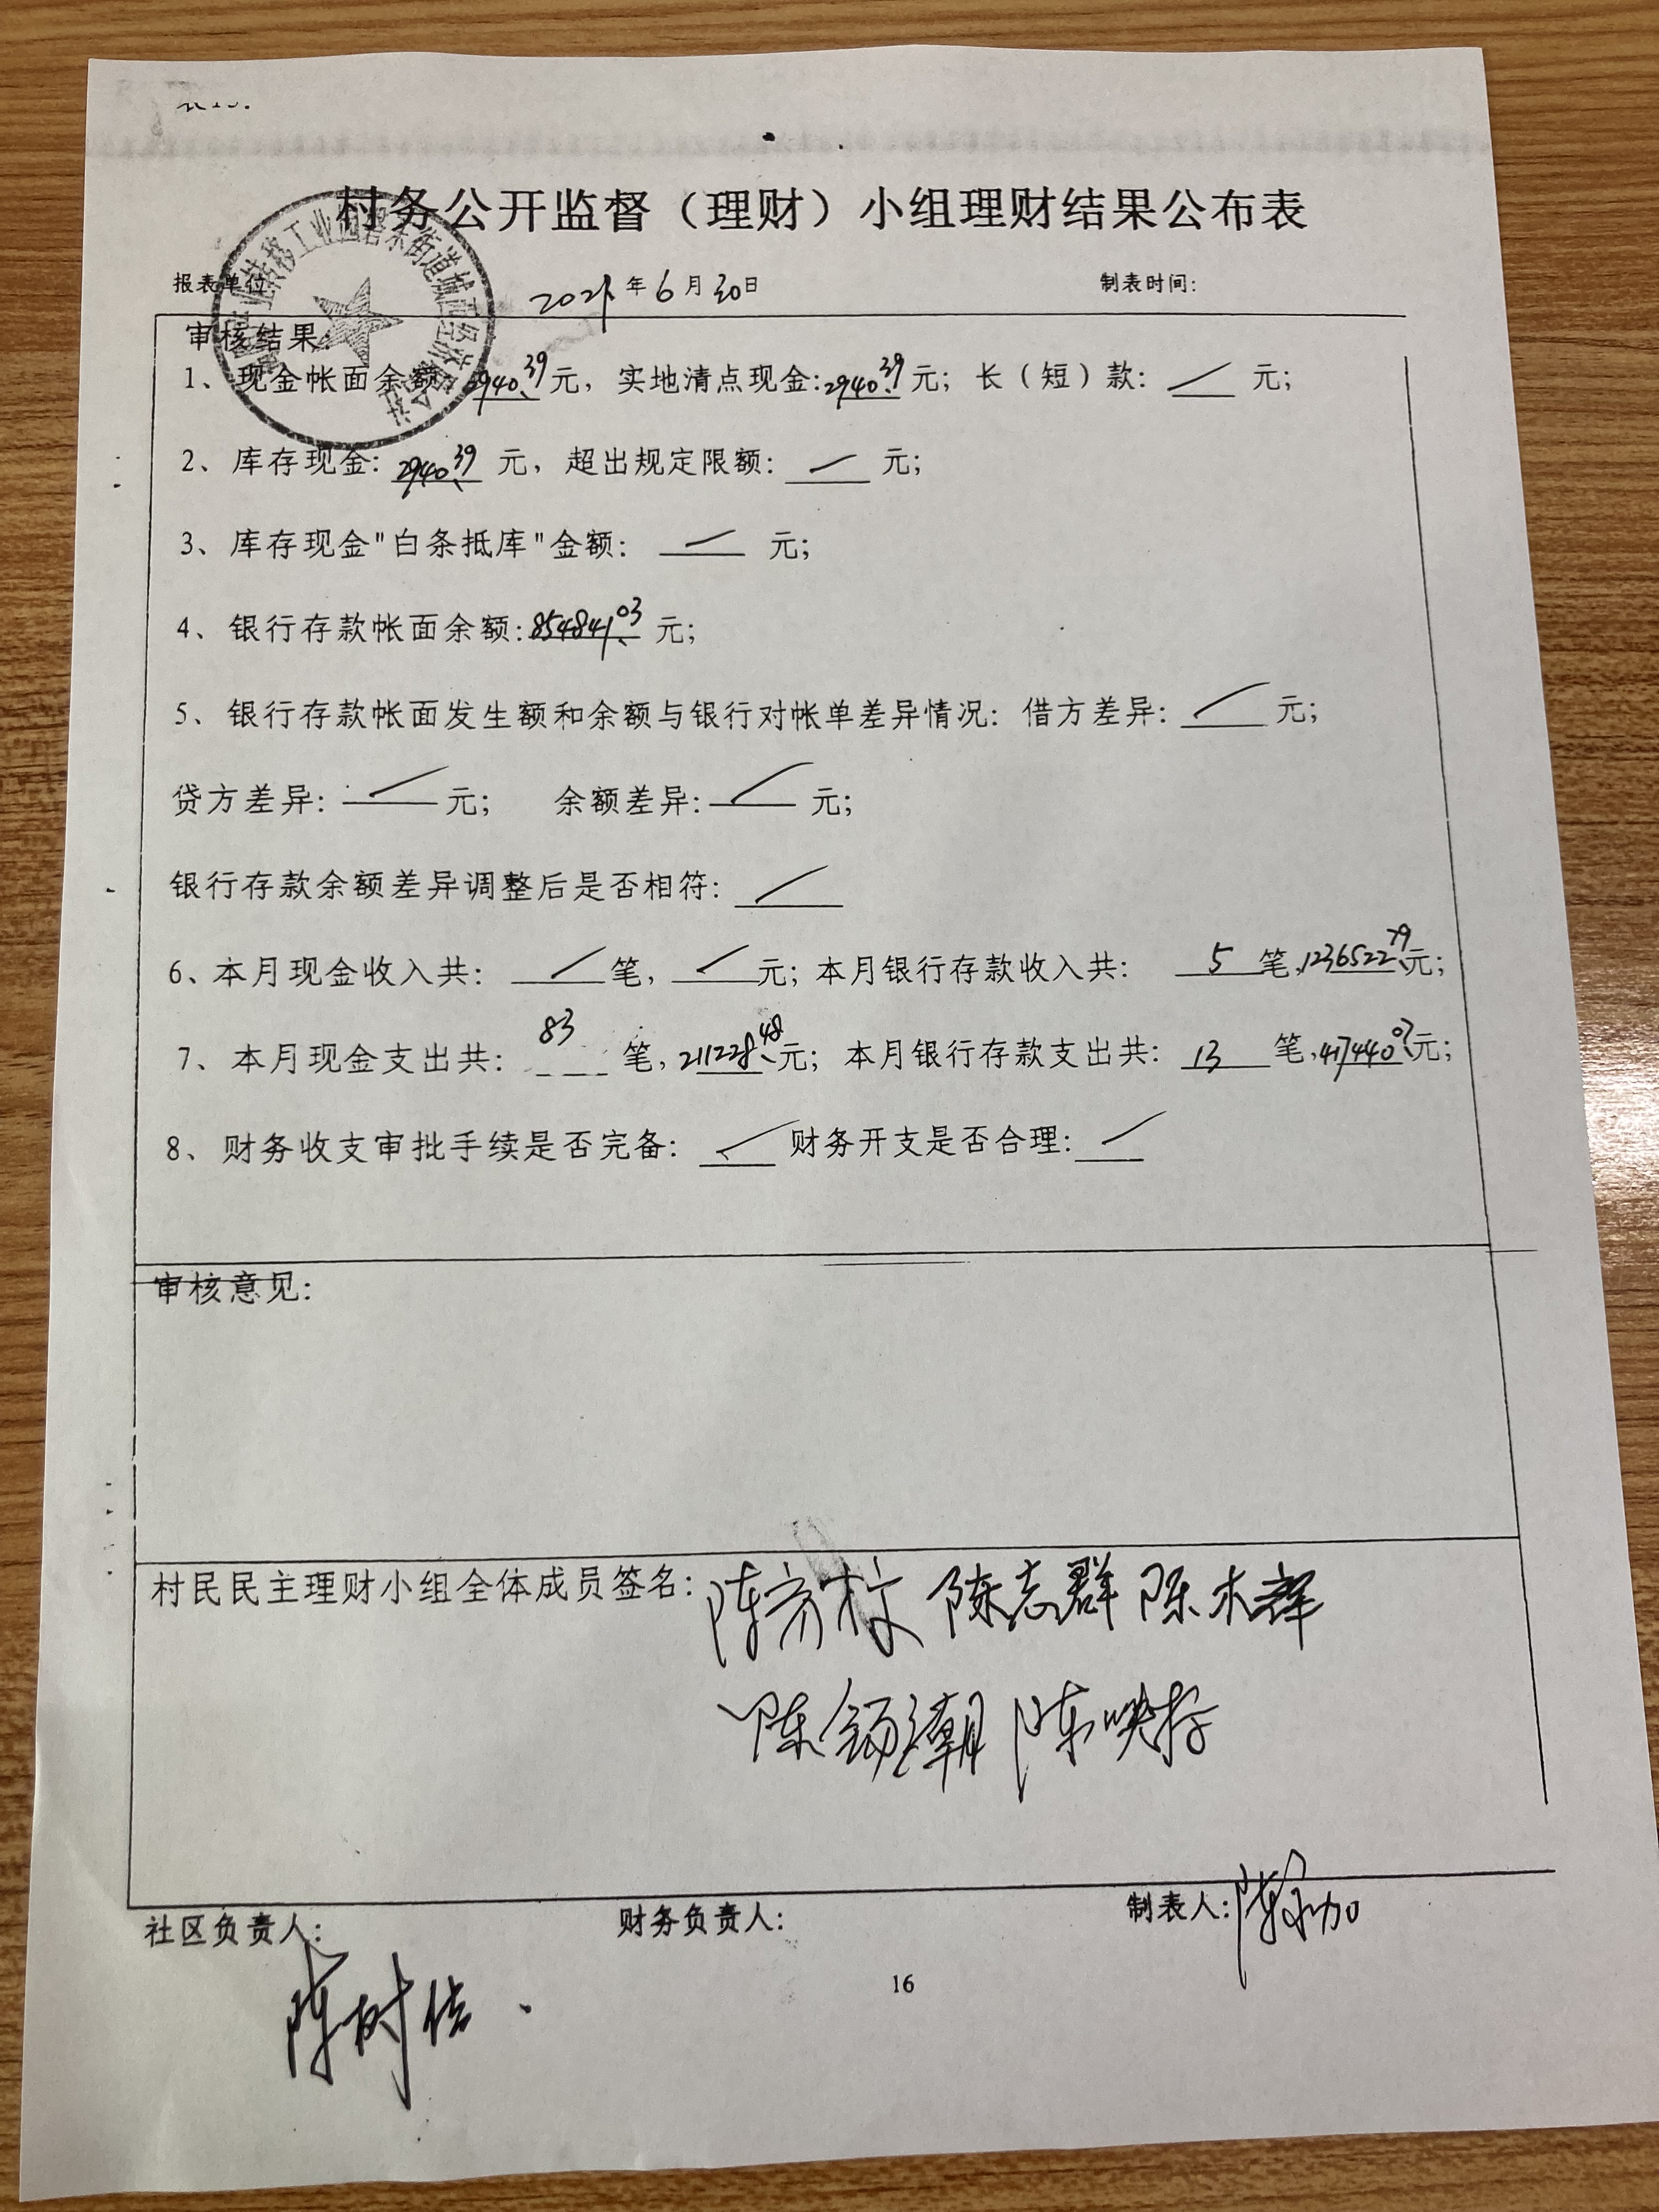 村务公开监督（理财）小组理财结果公布表
报表单位 2021年6月30日 制表时间:
审核结果:
1、现金帐面余额 2940.39元, 实地清点现金:2940.39元; 长（短）款: / 元;
2、库存现金: 2940.39 元, 超出规定限额: / 元;
3、库存现金"白条抵库"金额: / 元;
4、银行存款帐面余额:854841.03 元;
5、银行存款帐面发生额和余额与银行对帐单差异情况: 借方差异: / 元;
贷方差异: / 元; 余额差异: / 元;
银行存款余额差异调整后是否相符: /
6、本月现金收入共: / 笔, / 元; 本月银行存款收入共: 5 笔,1236522.79元;
7、本月现金支出共: 83 笔, 211228.48元; 本月银行存款支出共: 13 笔,417440.07元;
8、财务收支审批手续是否完备: / 财务开支是否合理: /
审核意见:
村民民主理财小组全体成员签名: 陈志群 陈木辉
陈 潮 陈映
社区负责人: 财务负责人: 制表人:陈
陈时信
16